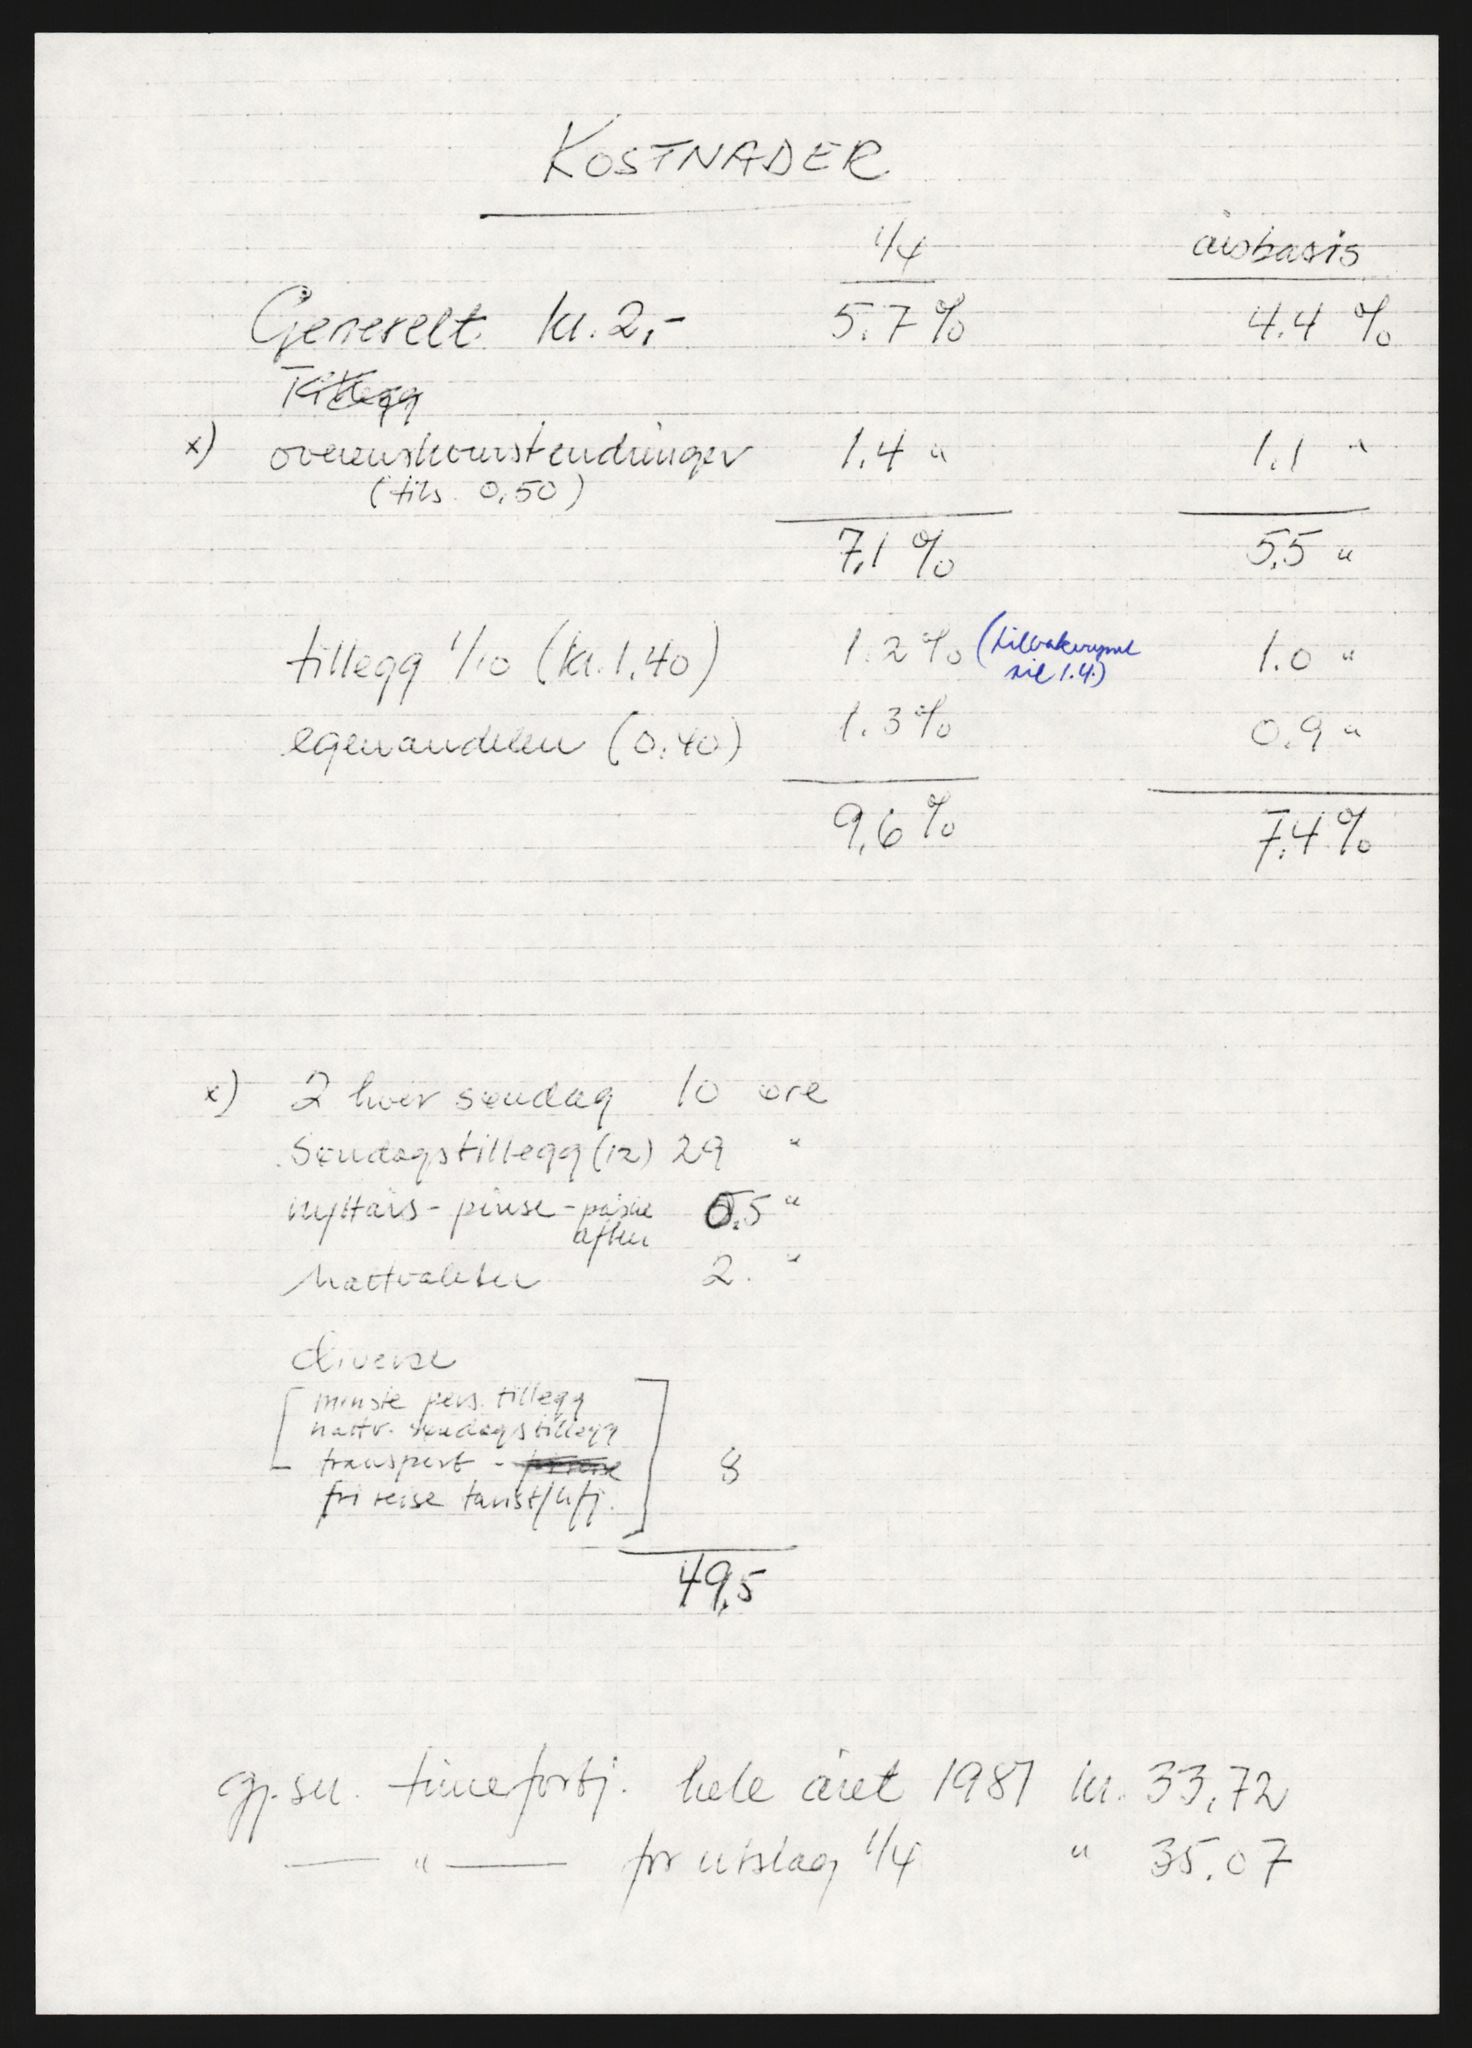 KOSTNADER
1/4 årsbasis
Generelt kr. 2,- 5.7% 4.4 %
Tillegg
x) overenskomstendringer 1.4 " 1.1 "
(tils. 0,50)
7,1 % 5,5 "
tillegg 1/10 (kr. 1,40) 1.2% (tilbakevirkende 1.0 "
til 1.4.)
egenandelen (0.40) 1.3% 0.9 "
9,6% 7.4%
x) 2 hver søndag 10 øre
Søndagstillegg (12) 29 "
nyttårs - pinse - påske 0.5 "
aften
Nattvakter 2. "
diverse
minste pers. tillegg
nattv. søndagstillegg
transport -
fri reise 8
49,5
gj.sn. timefortj. hele året 1987 kr. 33,72
— " — før utslag 1/4 " 35.07